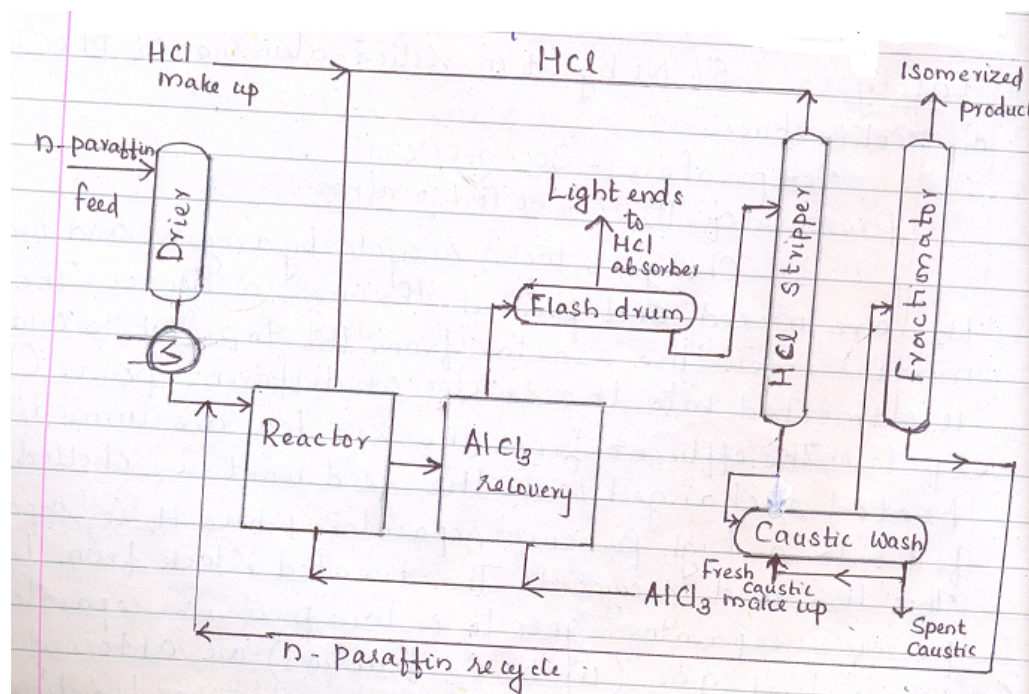 HCl
make up
HCl
Isomerized
product
n-paraffin
feed
Drier
Light ends
to
HCl
absorber
Flash drum
HCl Stripper
Fractionator
Reactor
AlCl3
recovery
Caustic wash
Fresh
caustic
AlCl3 make up
Spent
Caustic
n-paraffin recycle